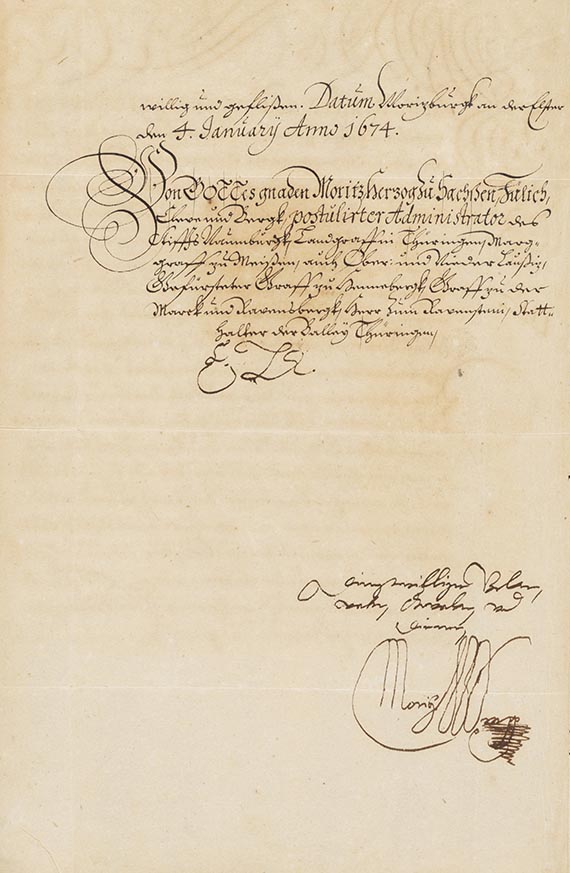 willig und geflißen. Datum Moritzburgk an der Elster
den 4. January Anno 1674.
Von GOTTes gnaden Moritz Herzog zu Sachßen, Jülich,
Cleve und Bergk, postulirter Administrator des
Stiffts Naumburgk, Landgraff in Thüringen, Marg-
graff zu Meißen, auch Ober- und Nieder Laußiz,
Gefürsteter Graff zu Hennebergk, Graff zu der
Marck und Ravensbergk, Herr zum Ravenstein, Statt-
halter der Balley Thüringen,
dienstwilliger
und
diener
Moritz